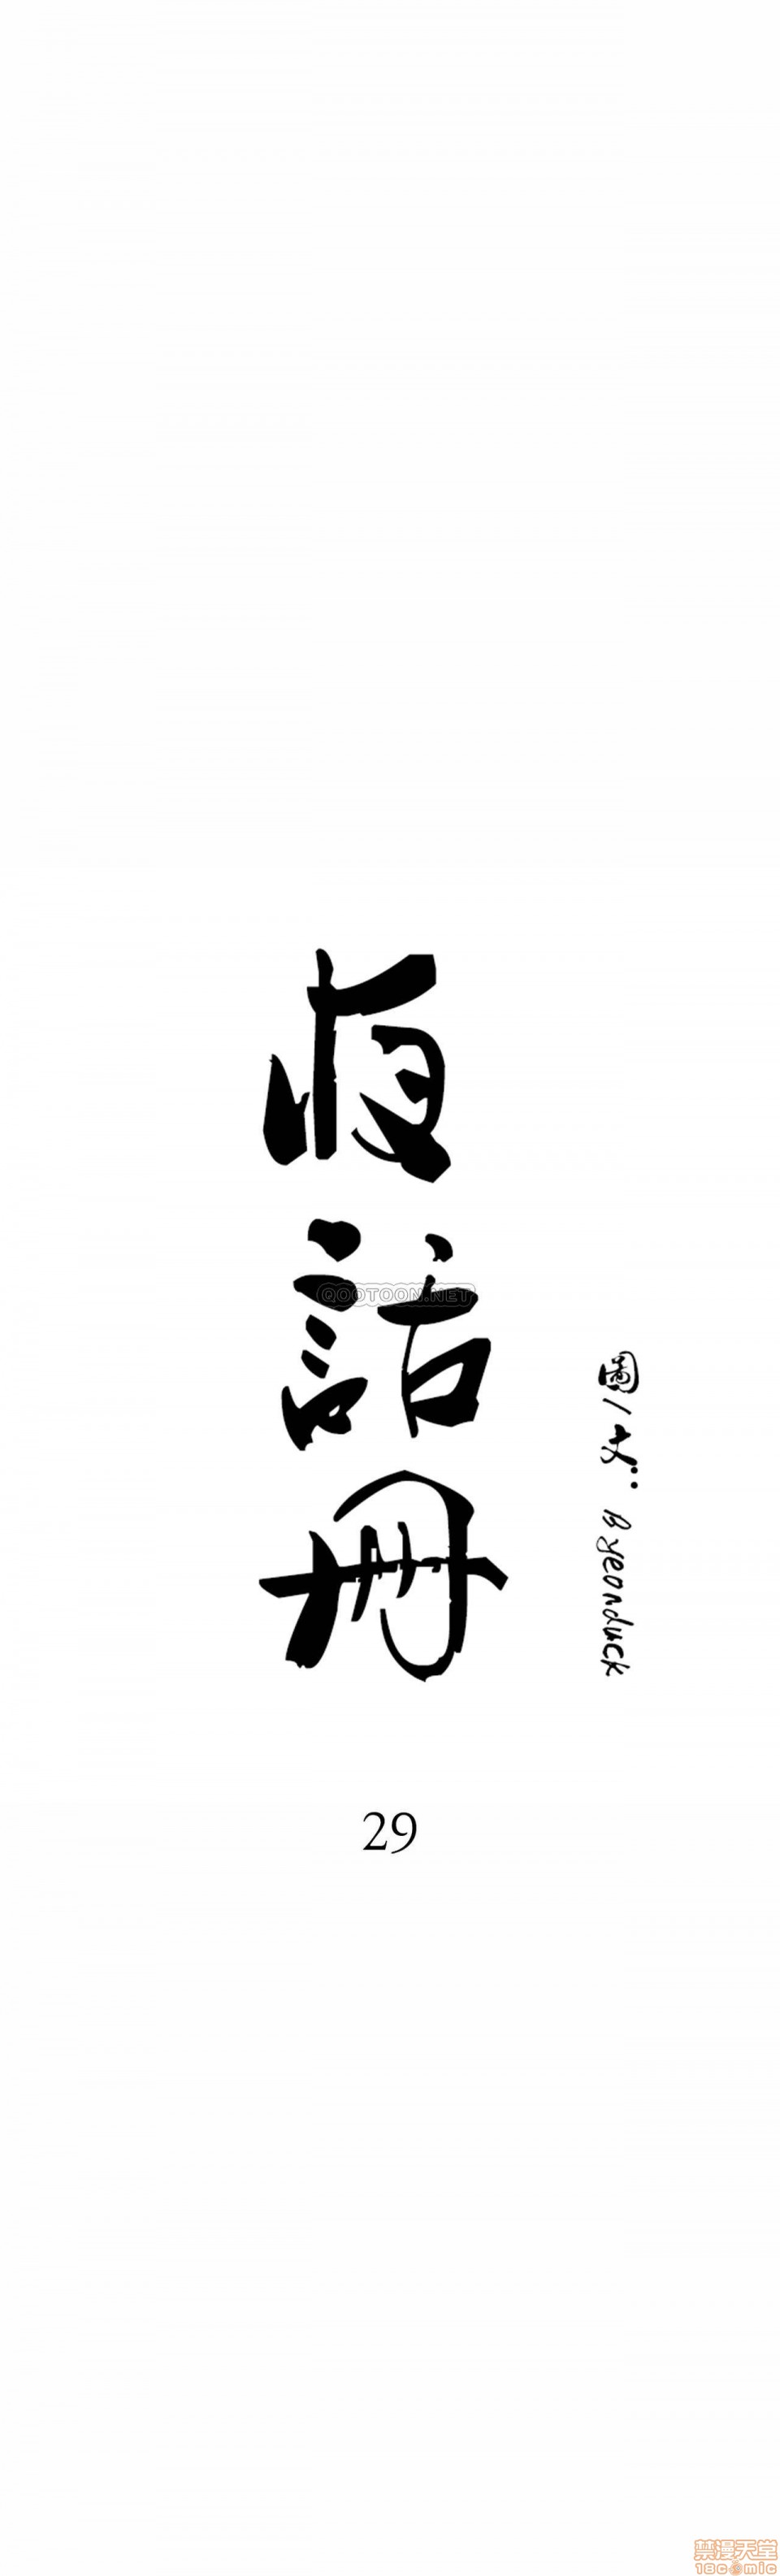 夜話冊
QOOTOON.NET
圖/文: Byeonduck
29
禁漫天堂
18comic